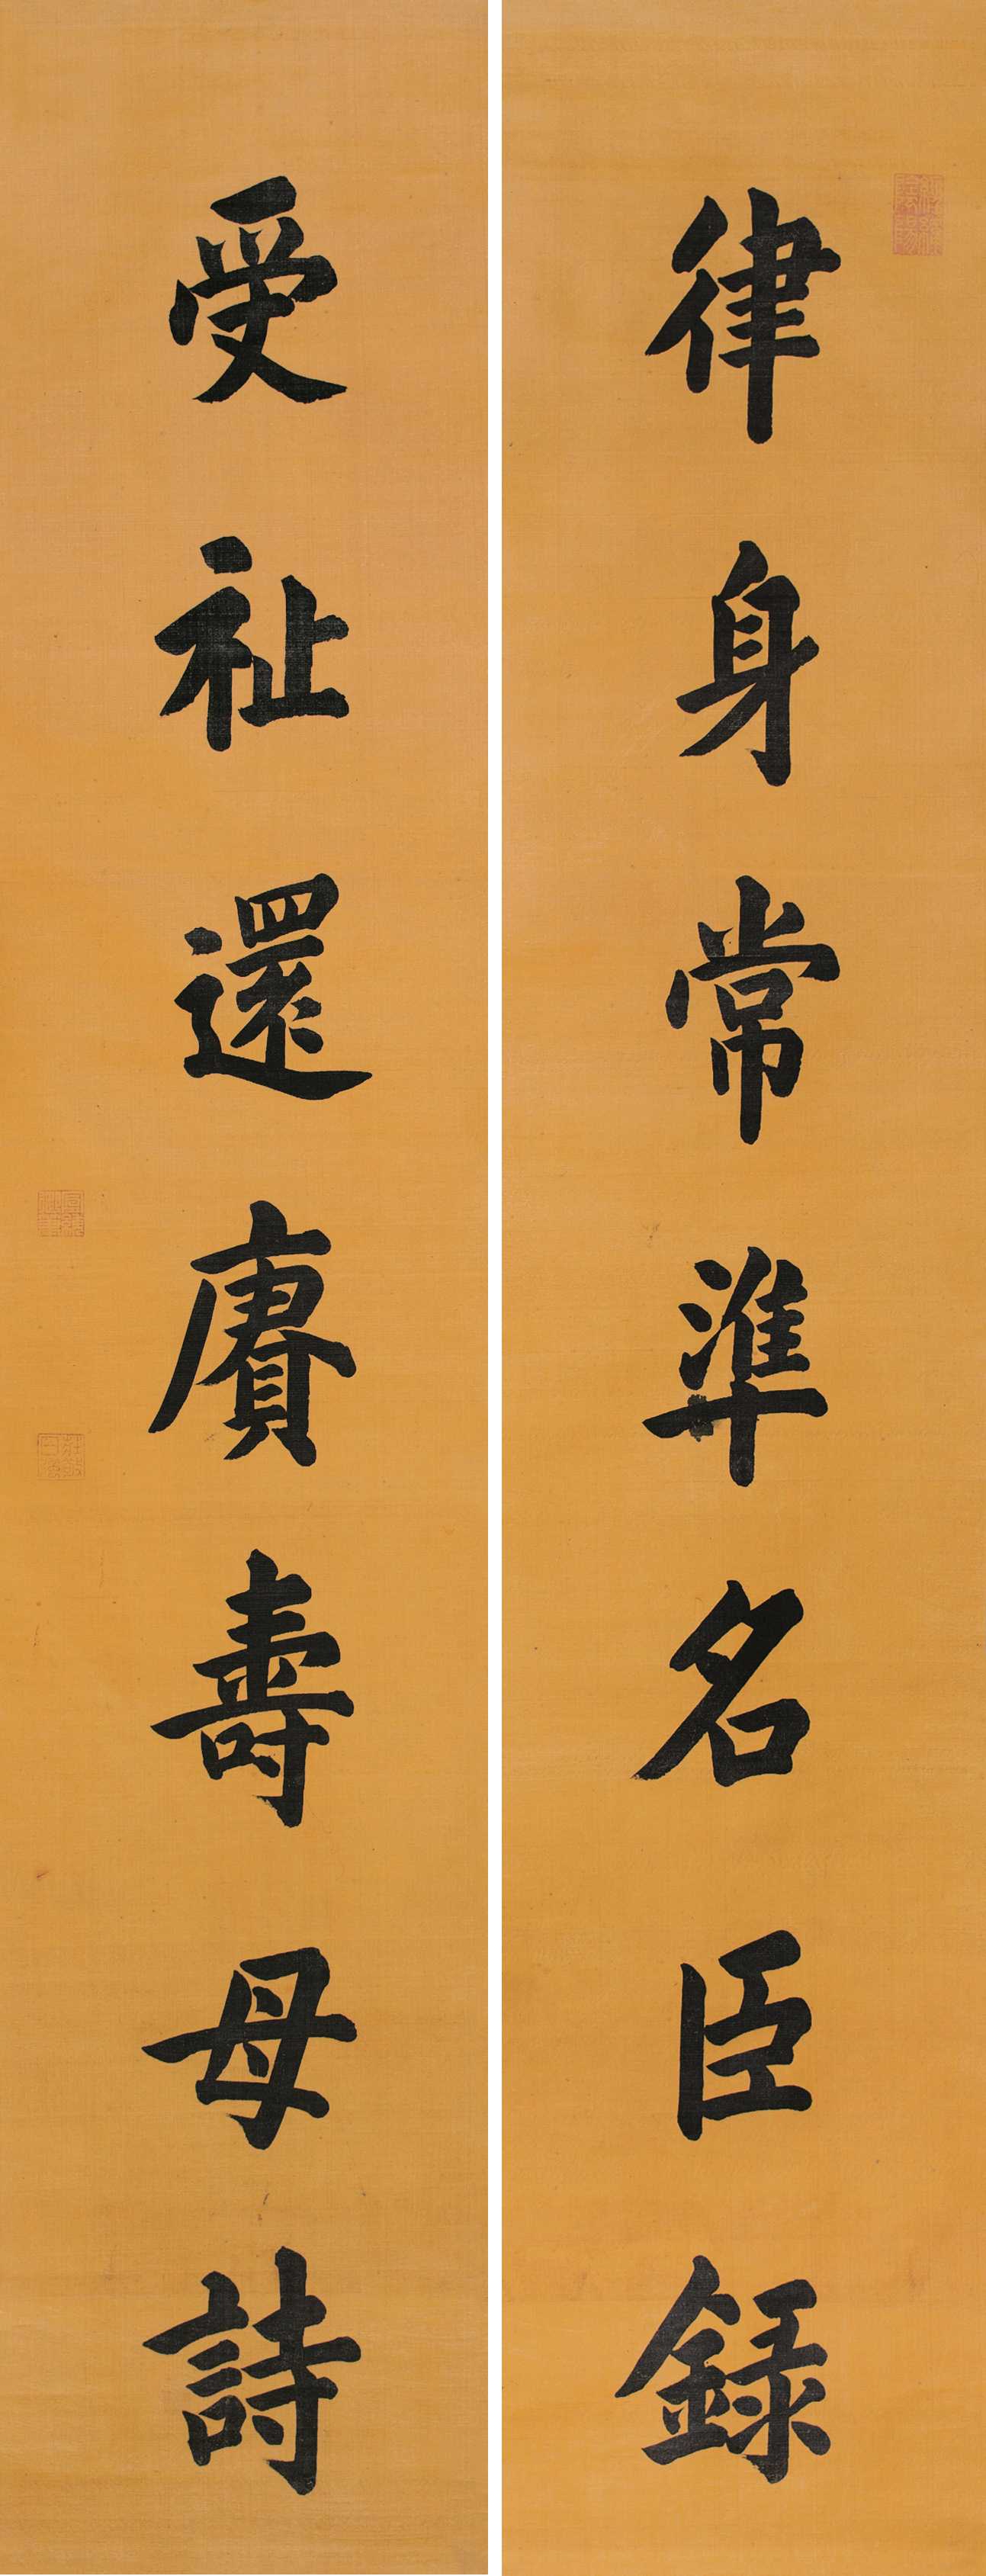 律身常準名臣録
受祉還賡壽母詩